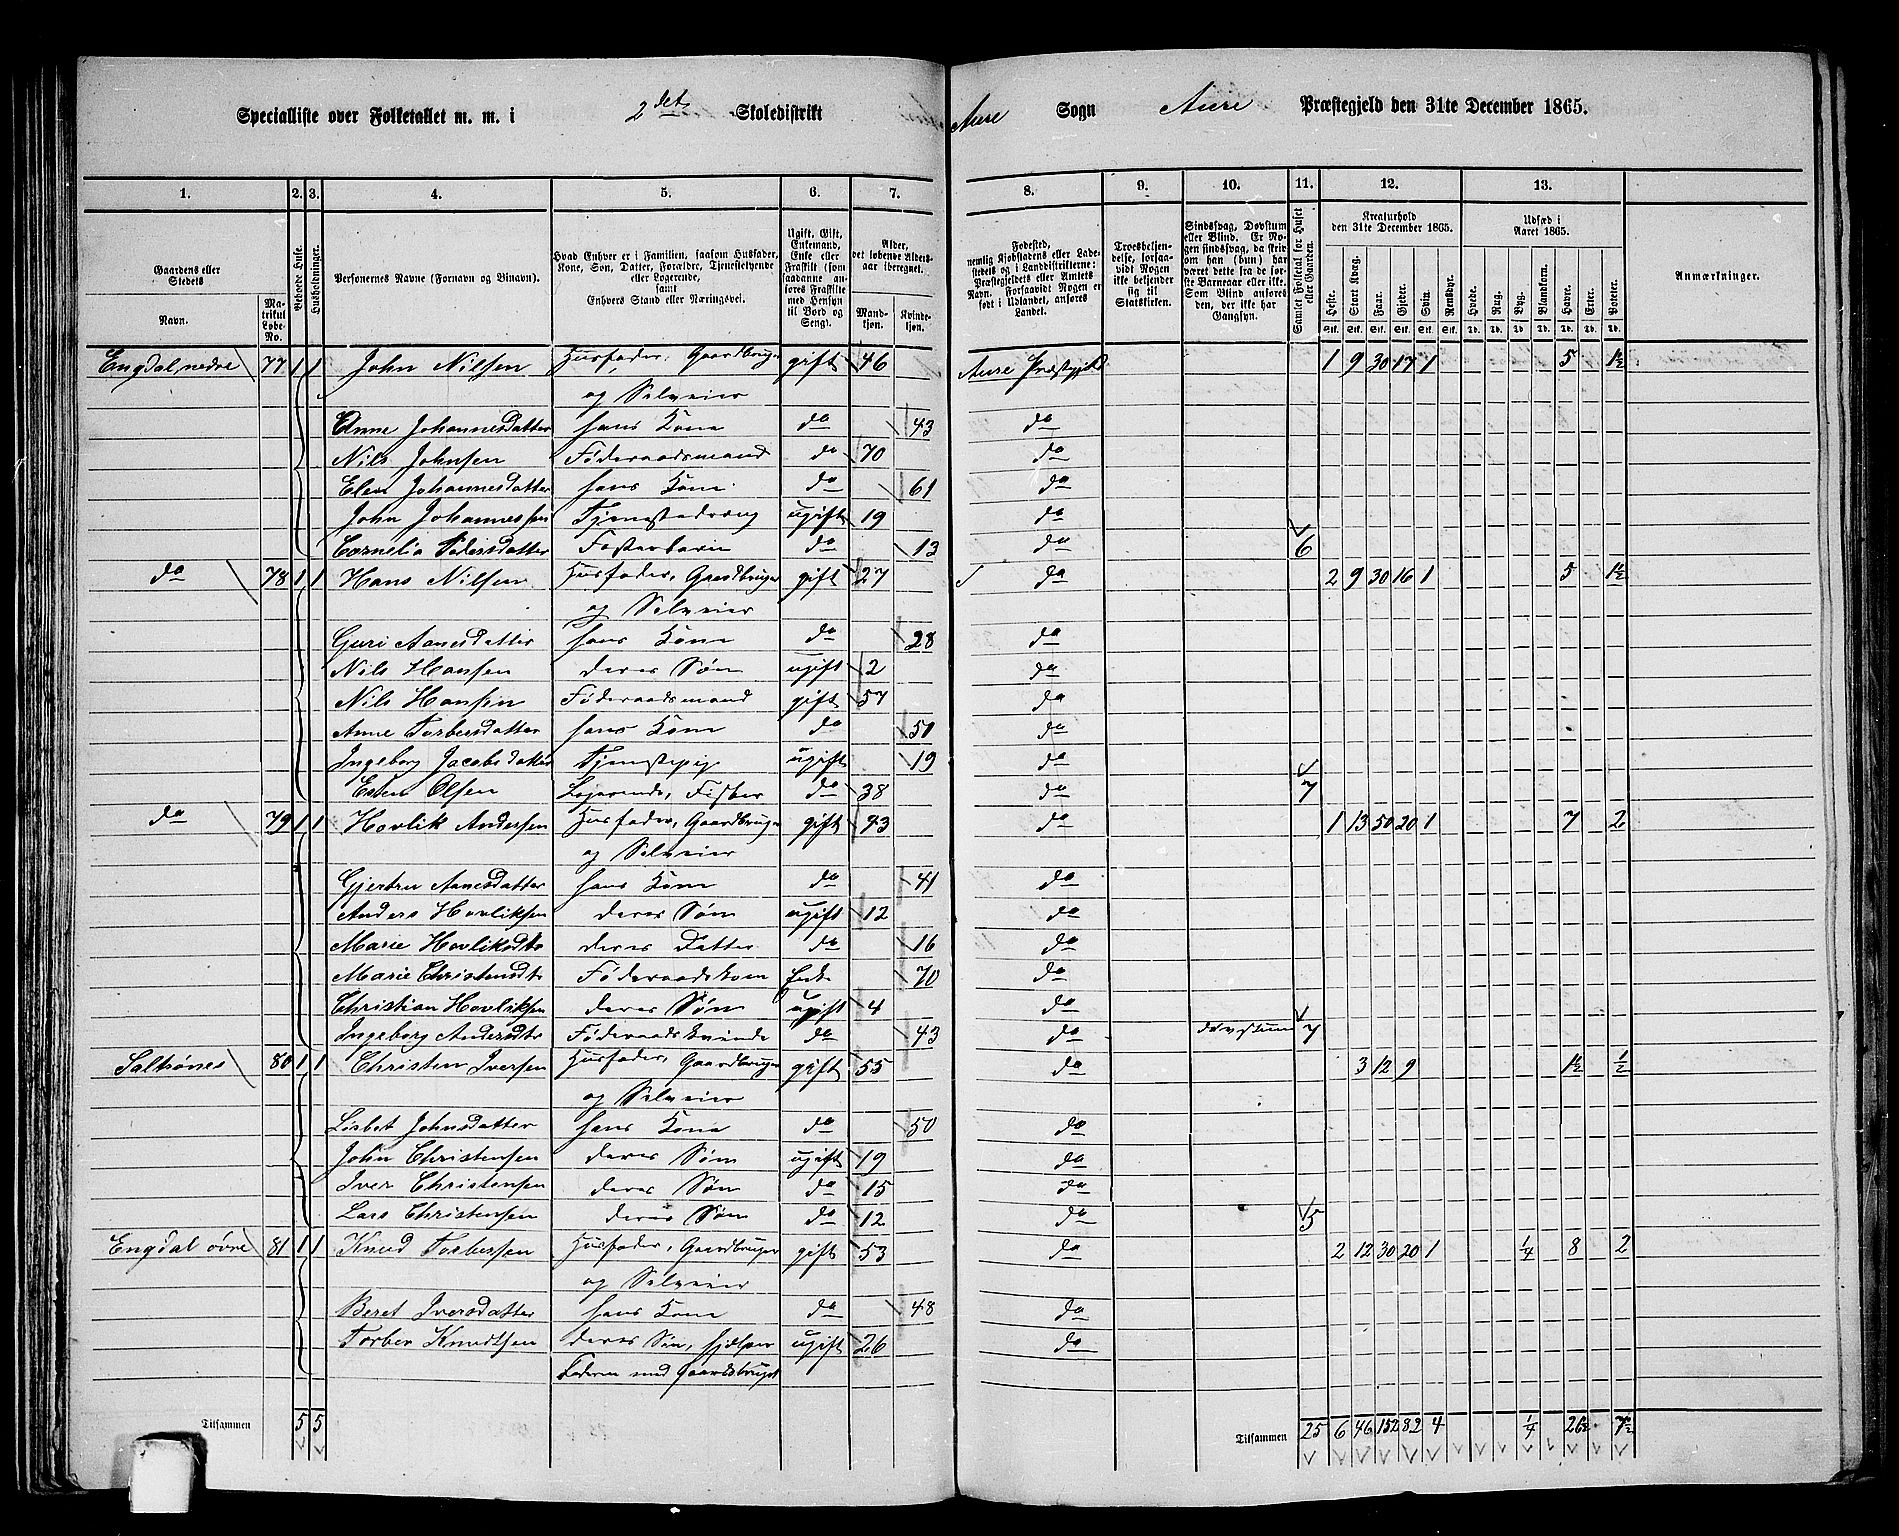 Specialliste over Folketallet m. m. i 2det Skoledistrikt Aure Sogn Aure Præstegjeld den 31te December 1865.
1. 2. 3. 4. 5. 6. 7. 8. 9. 10. 11. 12. 13.
Gaardens eller Stedets
Navn.
Matrikul Løbe-No.
Beboede Huse.
Husholdninger.
Personernes Navne (Fornavn og Binavn).
Hvad Enhver er i Familien, saasom Husfader, Kone, Søn, Datter, Forældre, Tjenestetyende eller Logerende, samt Enhvers Stand eller Næringsvei.
Ugift, Gift, Enkemand, Enke eller Fraskilt (som saadanne anføres Fraskilte med Hensyn til Bord og Seng).
Alder, det løbende Aldersaar iberegnet.
Mandkjøn. Kvindekjøn.
Fødested, nemlig Kjøbstadens eller Ladestedets og i Landdistrikterne: Præstegjeldets eller Amtets Navn. Forsaavidt Nogen er født i Udlandet, anføres Landet.
Troesbekjendelse, forsaavidt Nogen ikke bekjender sig til Statskirken.
Sindssvag, Døvstum eller Blind. Er Nogen sindssvag, da skrives om han (hun) har været dette fra de første Barneaar eller ikke. Som Blind anføres den, der ikke har Gangsyn.
Samlet Folketal for Huset eller Gaarden.
Kreaturhold den 31te December 1865.
Heste. Stort Kvæg. Faar. Gjeder. Svin. Rensdyr.
Udsæd i Aaret 1865.
Hvede. Rug. Byg. Blandkorn. Havre. Erter. Poteter.
Anmærkninger.
Engdal, nedre 77 1 1 John Nilsen Husfader, Gaardbruger gift 46 Aure Præstegjeld 1 9 30 17 1 5 1½
og Selveier
Anne Johannesdatter hans Kone do 43 do
Nils Johnsen Föderaadsmand do 70 do
Elen Johannesdatter hans Kone do 61 do
John Johannessen Tjenestedreng ugift 19 do
Cornelia Pedersdatter Fosterbarn do 13 do 6
do 78 1 1 Hans Nilsen Husfader, Gaardbruger gift 27 do 2 9 30 16 1 5 1½
og Selveier
Guri Aanesdatter hans Kone do 28 do
Nils Hansen deres Søn ugift 2 do
Nils Hansen Föderaadsmand gift 57 do
Anne Torbersdatter hans Kone do 51 do
Ingeborg Jacobsdatter Tjenestepig ugift 19 do
Esten Olsen Lojerende, Fisker do 38 do 7
do 79 1 1 Hovlik Andersen Husfader, Gaardbruger gift 43 do 1 13 50 20 1 7 2
og Selveier
Gjertru Aanesdatter hans Kone do 41 do
Anders Hovliksen deres Søn ugift 12 do
Marie Hovliksdtr deres Datter do 16 do
Marie Christensdtr Föderaadskone Enke 70 do
Christian Hovliksen deres Søn ugift 4 do
Ingeborg Andersdtr Föderaadskvinde do 43 do døvstum 7
Saltrönes 80 1 1 Christen Iversen Husfader, Gaardbruger gift 55 do 3 12 9 1½ ½
og Selveier
Lisbet Johnsdatter hans Kone do 50 do
John Christensen deres Søn ugift 19 do
Iver Christensen deres Søn do 15 do
Lars Christensen deres Søn do 12 do 5
Engdal øvre 81 1 1 Knud Torbersen Husfader, Gaardbruger gift 53 do 2 12 30 20 1 ¼ 8 2
og Selveier
Beret Iversdatter hans Kone do 48 do
Torber Knudtsen deres Søn, hjelper ugift 26 do
Faderen med Gaardsbruget
Tilsammen 5 5 Tilsammen 25 6 46 152 82 4 ¼ 26½ 7½